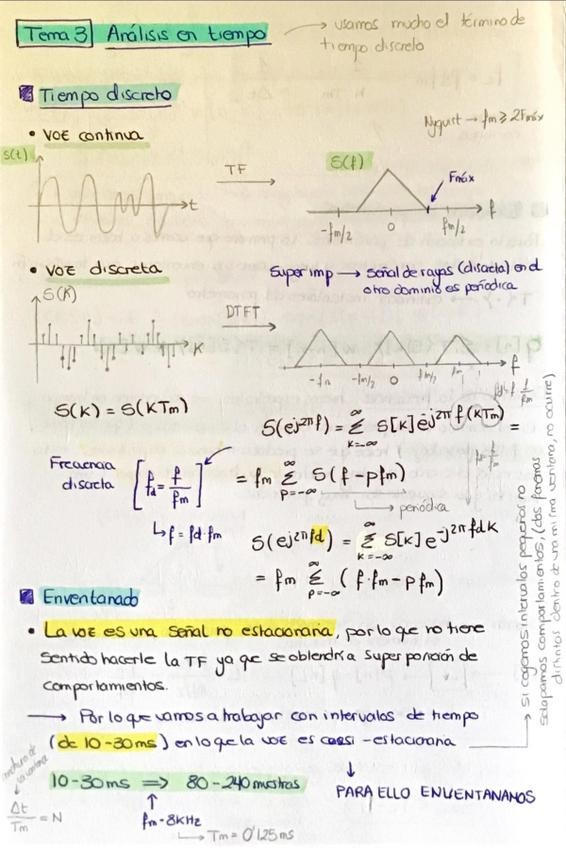 Tema 3 Análisis en tiempo
→ usamos mucho el término de
tiempo discreto
Tiempo discreto
Nyquist → fm ≥ 2Fmáx
• VOE continua
S(t)
TF
S(f)
Fmáx
t
-fm/2 0 fm/2 f
• VOE discreta
Super imp → señal de rayas (discreta) en el
otro dominio es periódica
S(K)
DTFT
K
-fm -fm/2 0 fm/2 fm f
S(K) = S(KTm)
S(ej2πf) = ∞Σk=-∞ S[k]ej2π f(KTm) =
Frecuencia
discreta
[fd = f/fm]
= fm ∞Σp=-∞ S(f-pfm)
→ periódica
↳ f = fd·fm
S(ej2πfd) = ∞Σk=-∞ S[k]e-j2πfdK
= fm ∞Σp=-∞ (f·fm-pfm)
Enventanado
• La voz es una señal no estacionaria, por lo que no tiene
sentido hacerle la TF ya que se obtendría superposición de
comportamientos.
→ Por lo que vamos a trabajar con intervalos de tiempo
(de 10-30ms) en lo que la voz es cuasi-estacionaria
→ Si cogemos intervalos pequeños no
solapamos comportamientos, (dos formas
distintas dentro de una misma ventana, no ocurre)
↓
PARA ELLO ENVENTANAMOS
anchura de
la ventana
10-30ms ⇒ 80-240 muestras
↑
fm = 8KHz
Δt/Tm = N
↳ Tm = 0'125ms